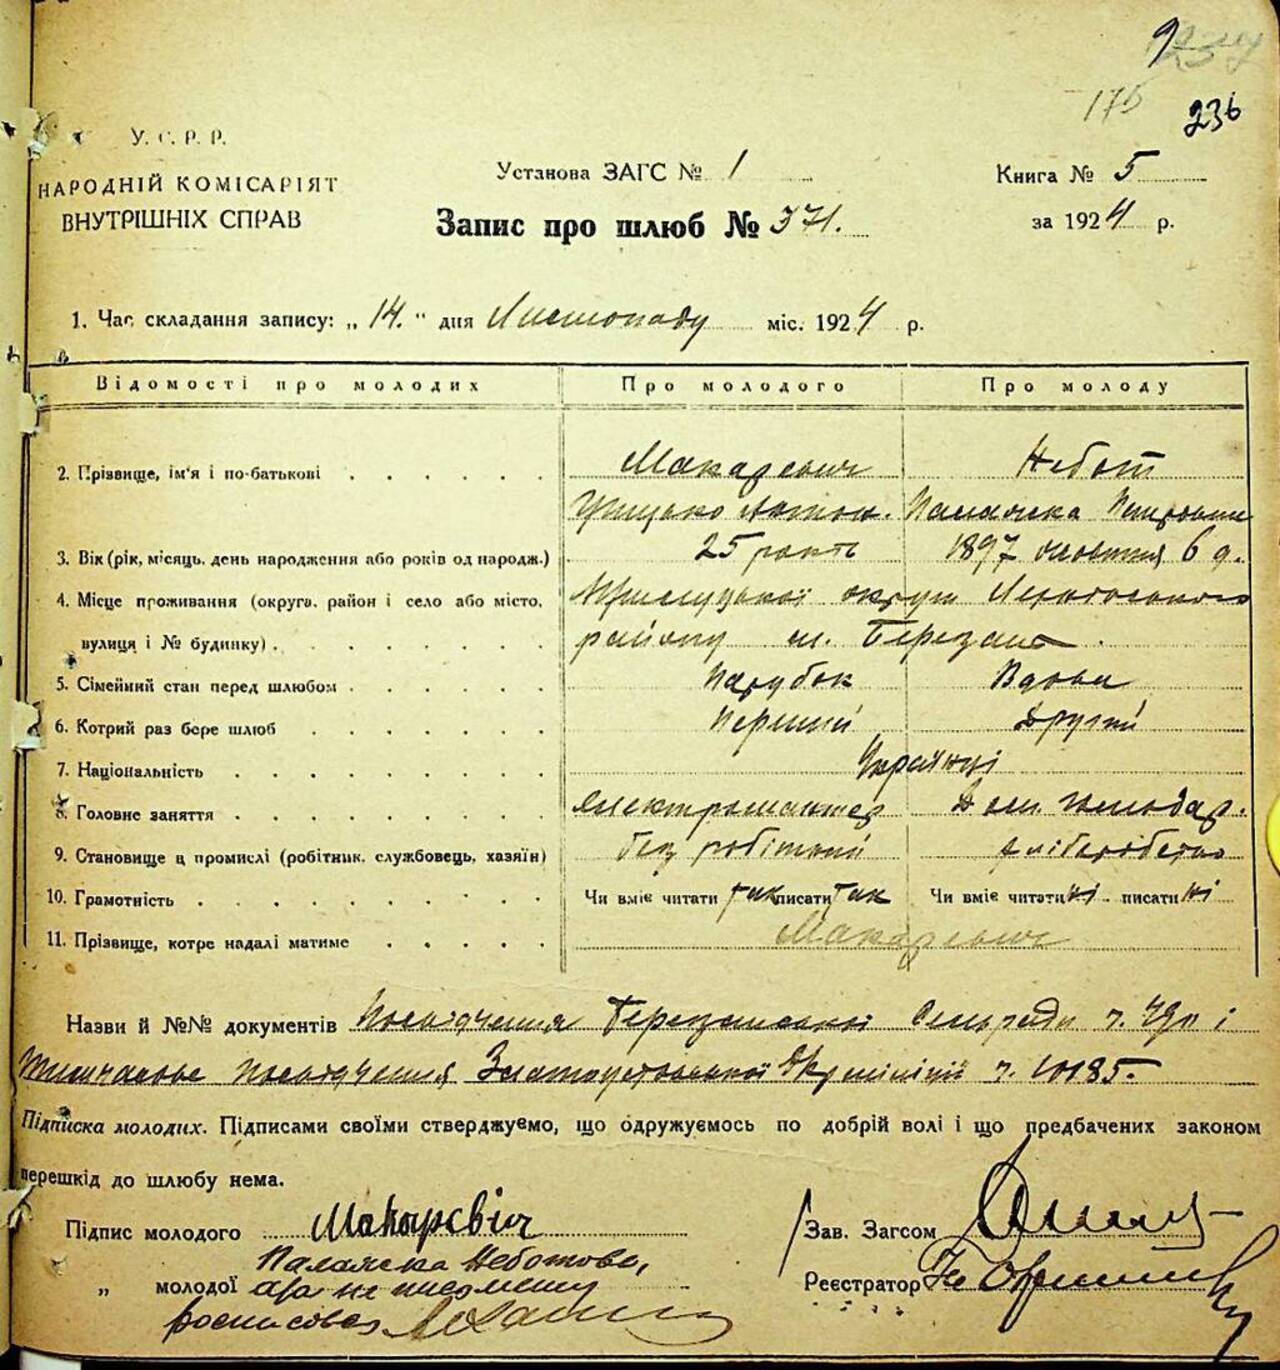 9
175 236
У. С. Р. Р.
НАРОДНІЙ КОМІСАРІЯТ
ВНУТРІШНІХ СПРАВ
Установа ЗАГС № 1
Книга № 5
Запис про шлюб № 371.
за 1924 р.
1. Час складання запису: „14.“ дня Листопаду міс. 1924 р.
Відомості про молодих Про молодого Про молоду
2. Прізвище, ім'я і по-батькові Макаревич Небот
Грицько Антон. Палажка Петровна
3. Вік (рік, місяць, день народження або років од народж.) 25 років 1897 жовтня 6 д.
4. Місце проживання (округа, район і село або місто, Прилуцької округи
вулиця і № будинку) району м. Березань.
5. Сімейний стан перед шлюбом Парубок Вдова
6. Котрий раз бере шлюб Перший Другий
7. Національність Українці
8. Головне заняття Електромонтер Дом. господар.
9. Становище в промислі (робітник, службовець, хазяїн) безробітний хліборобство
10. Грамотність Чи вміє читати так писати так Чи вміє читати ні писати ні
11. Прізвище, котре надалі матиме Макаревич
Назви й №№ документів Посвідчення Березанської Сельради ч. і
Тимчасове посвідчення Златоустовської Окрміліції ч. 10185.
Підписка молодих. Підписами своїми стверджуємо, що одружуємось по добрій волі і що предбачених законом
перешкід до шлюбу нема.
Підпис молодого Макаревич
Зав. Загсом
„ молодої Палажка Неботова,
а за не письменну
росписався
Реєстратор